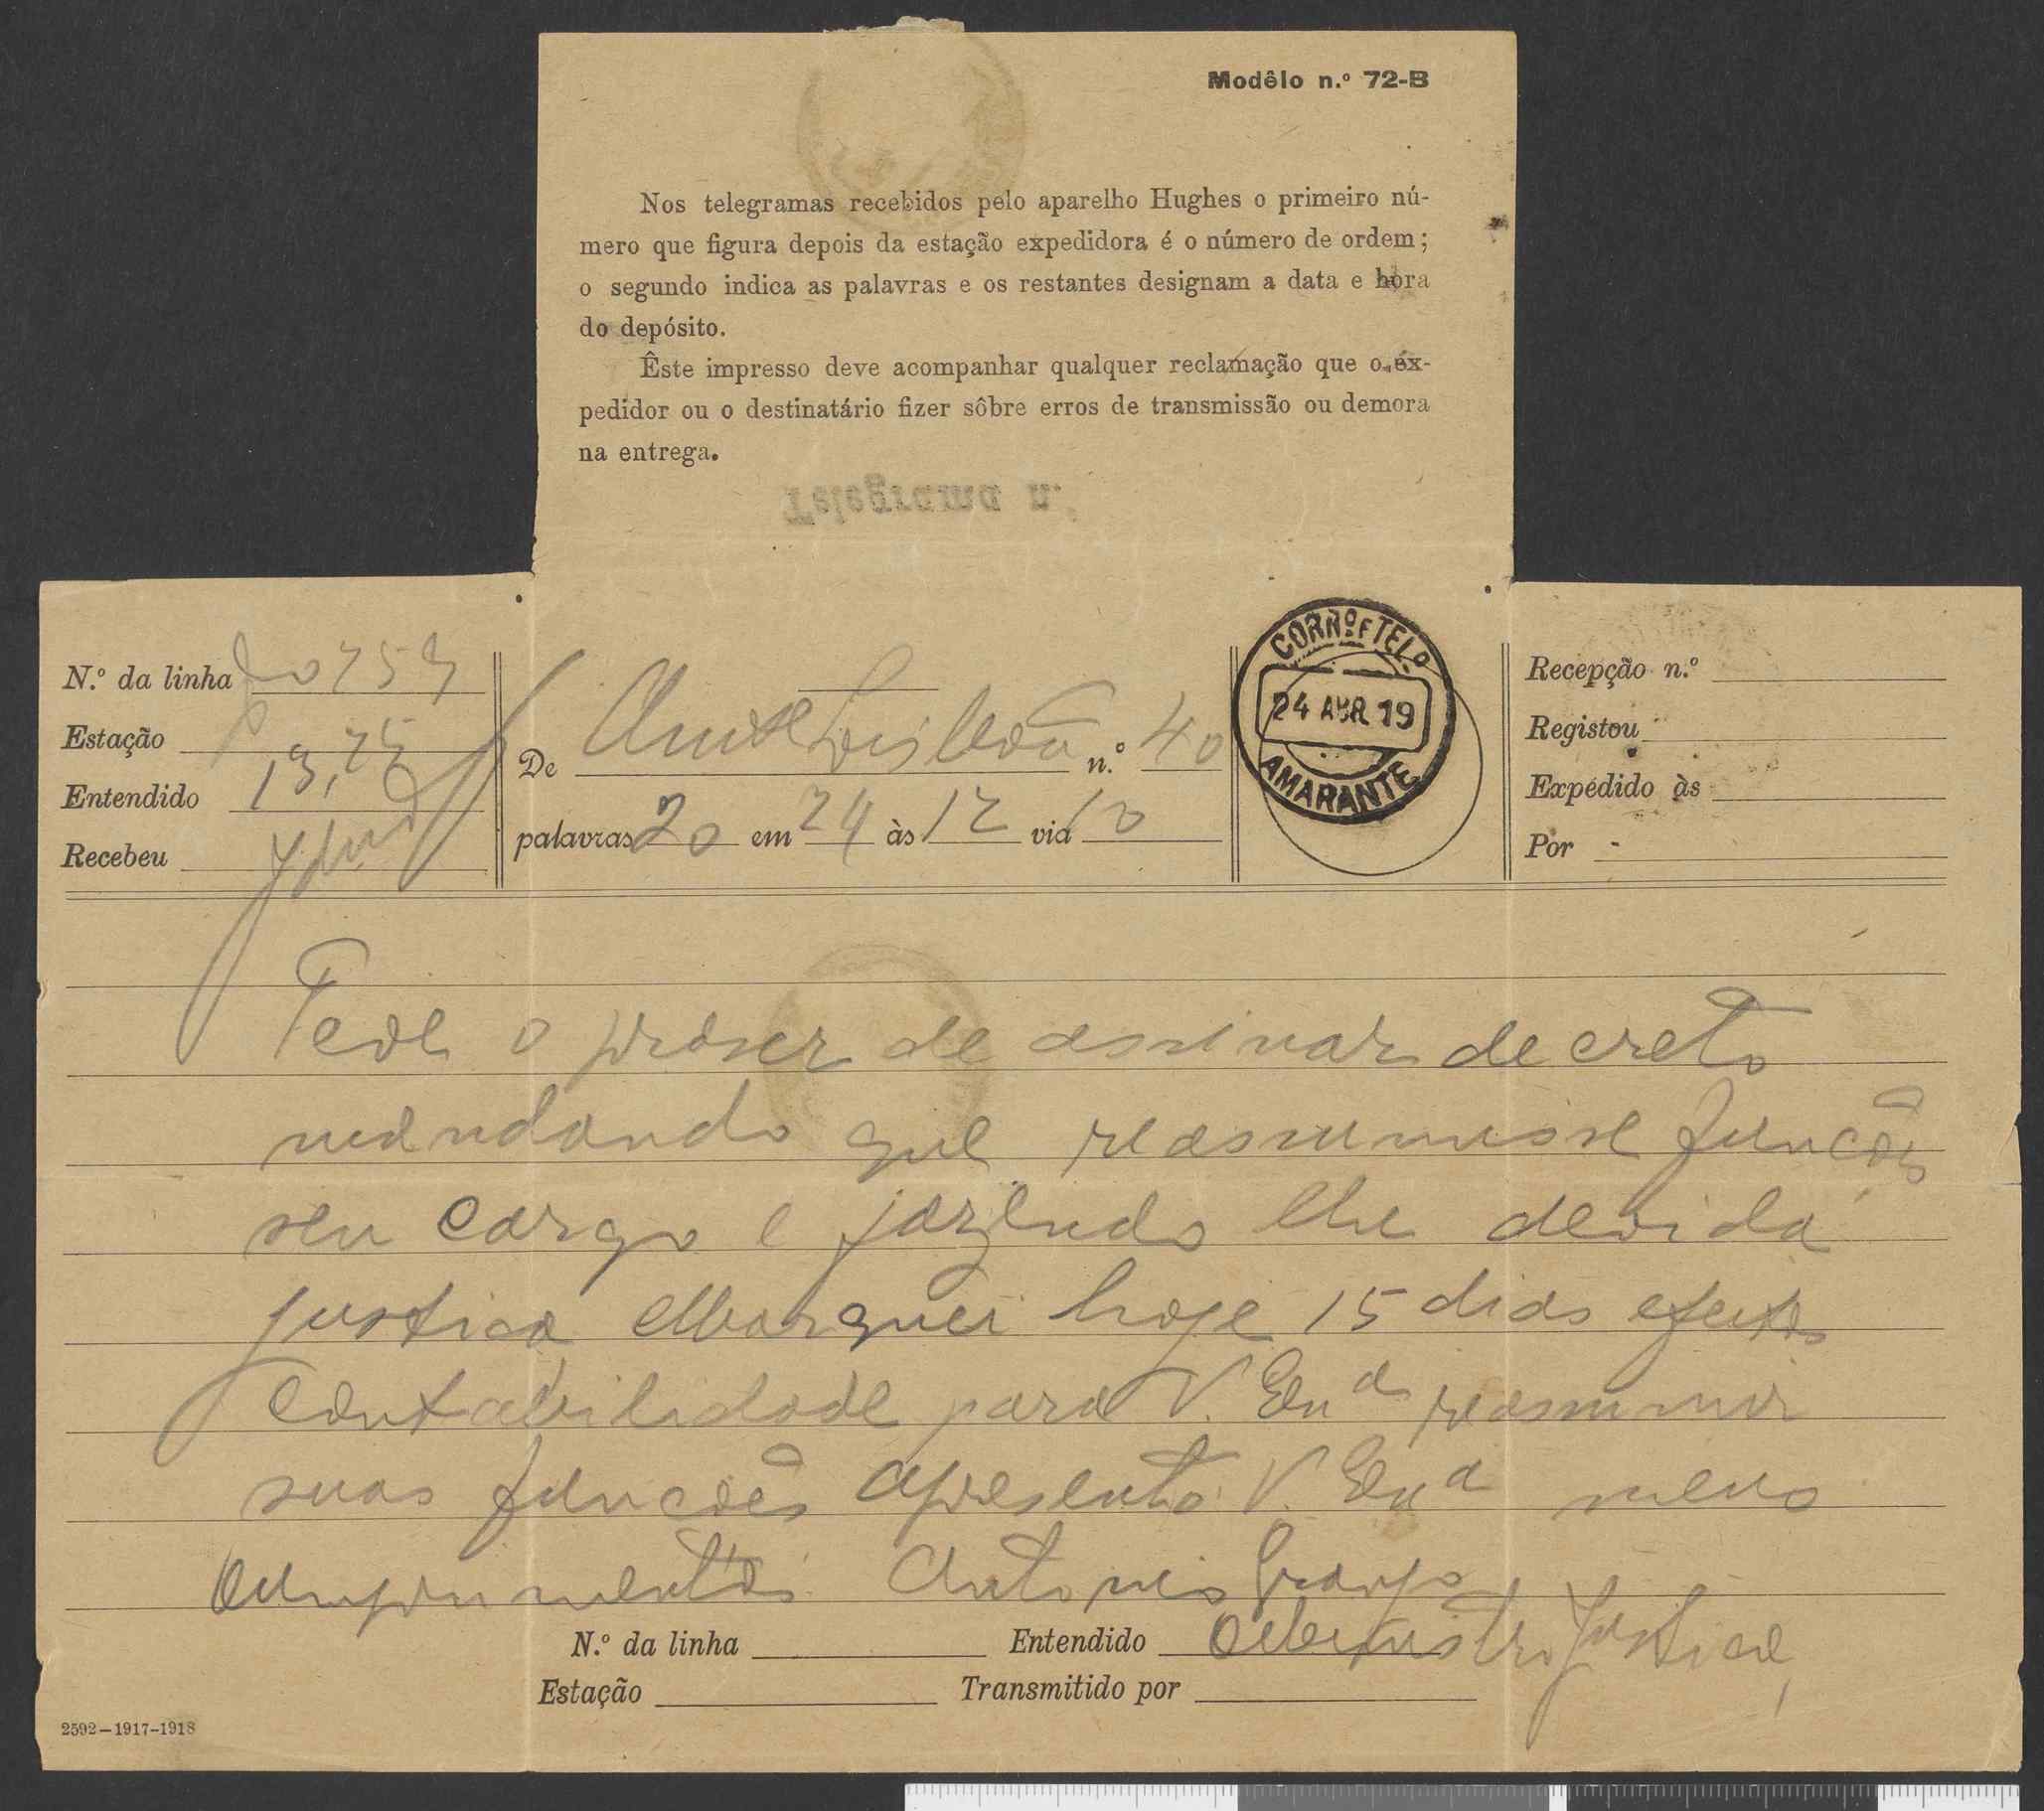 Modêlo n.º 72-B
Nos telegramas recebidos pelo aparelho Hughes o primeiro nú-
mero que figura depois da estação expedidora é o número de ordem;
o segundo indica as palavras e os restantes designam a data e hora
do depósito.
Êste impresso deve acompanhar qualquer reclamação que o ex-
pedidor ou o destinatário fizer sôbre erros de transmissão ou demora
na entrega.
Telegrama n.
N.º da linha
Estação
Entendido 13,25
Recebeu
De Lisboa n.º 40
palavras 20 em 24 às 12 via 10
CORRº E TELº
24 ABR 19
AMARANTE
Recepção n.º
Registou
Expedido às
Por
Tede o praser de assinar decreto
mandando que reassumisse funcões
seu cargo e fazendo lhe devida
justica marquei hoje 15 dias efeitos
contabilidade para V. Exa reasumir
suas funcões apresento V. Exa meus
cumprimentos Antonio Granjo
Ministro Justica
N.º da linha Entendido
Estação Transmitido por
2592-1917-1918